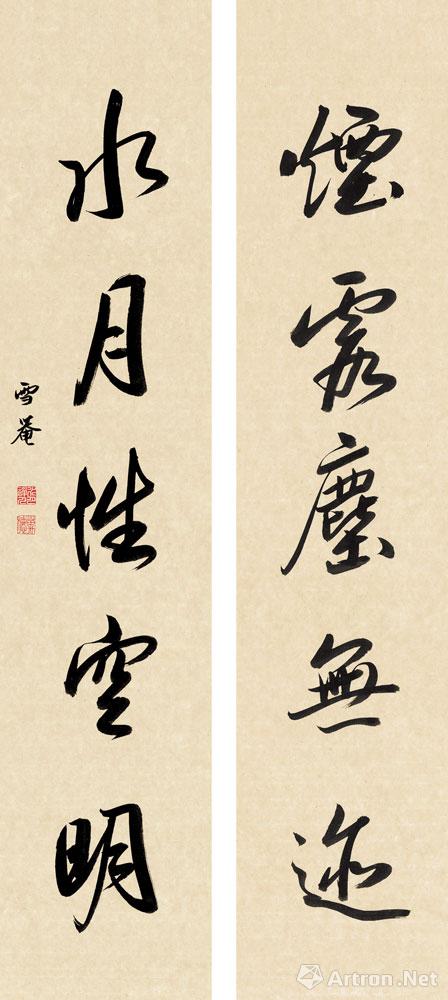 煙霞塵無迹
水月性空明
雪菴
Artron.Net